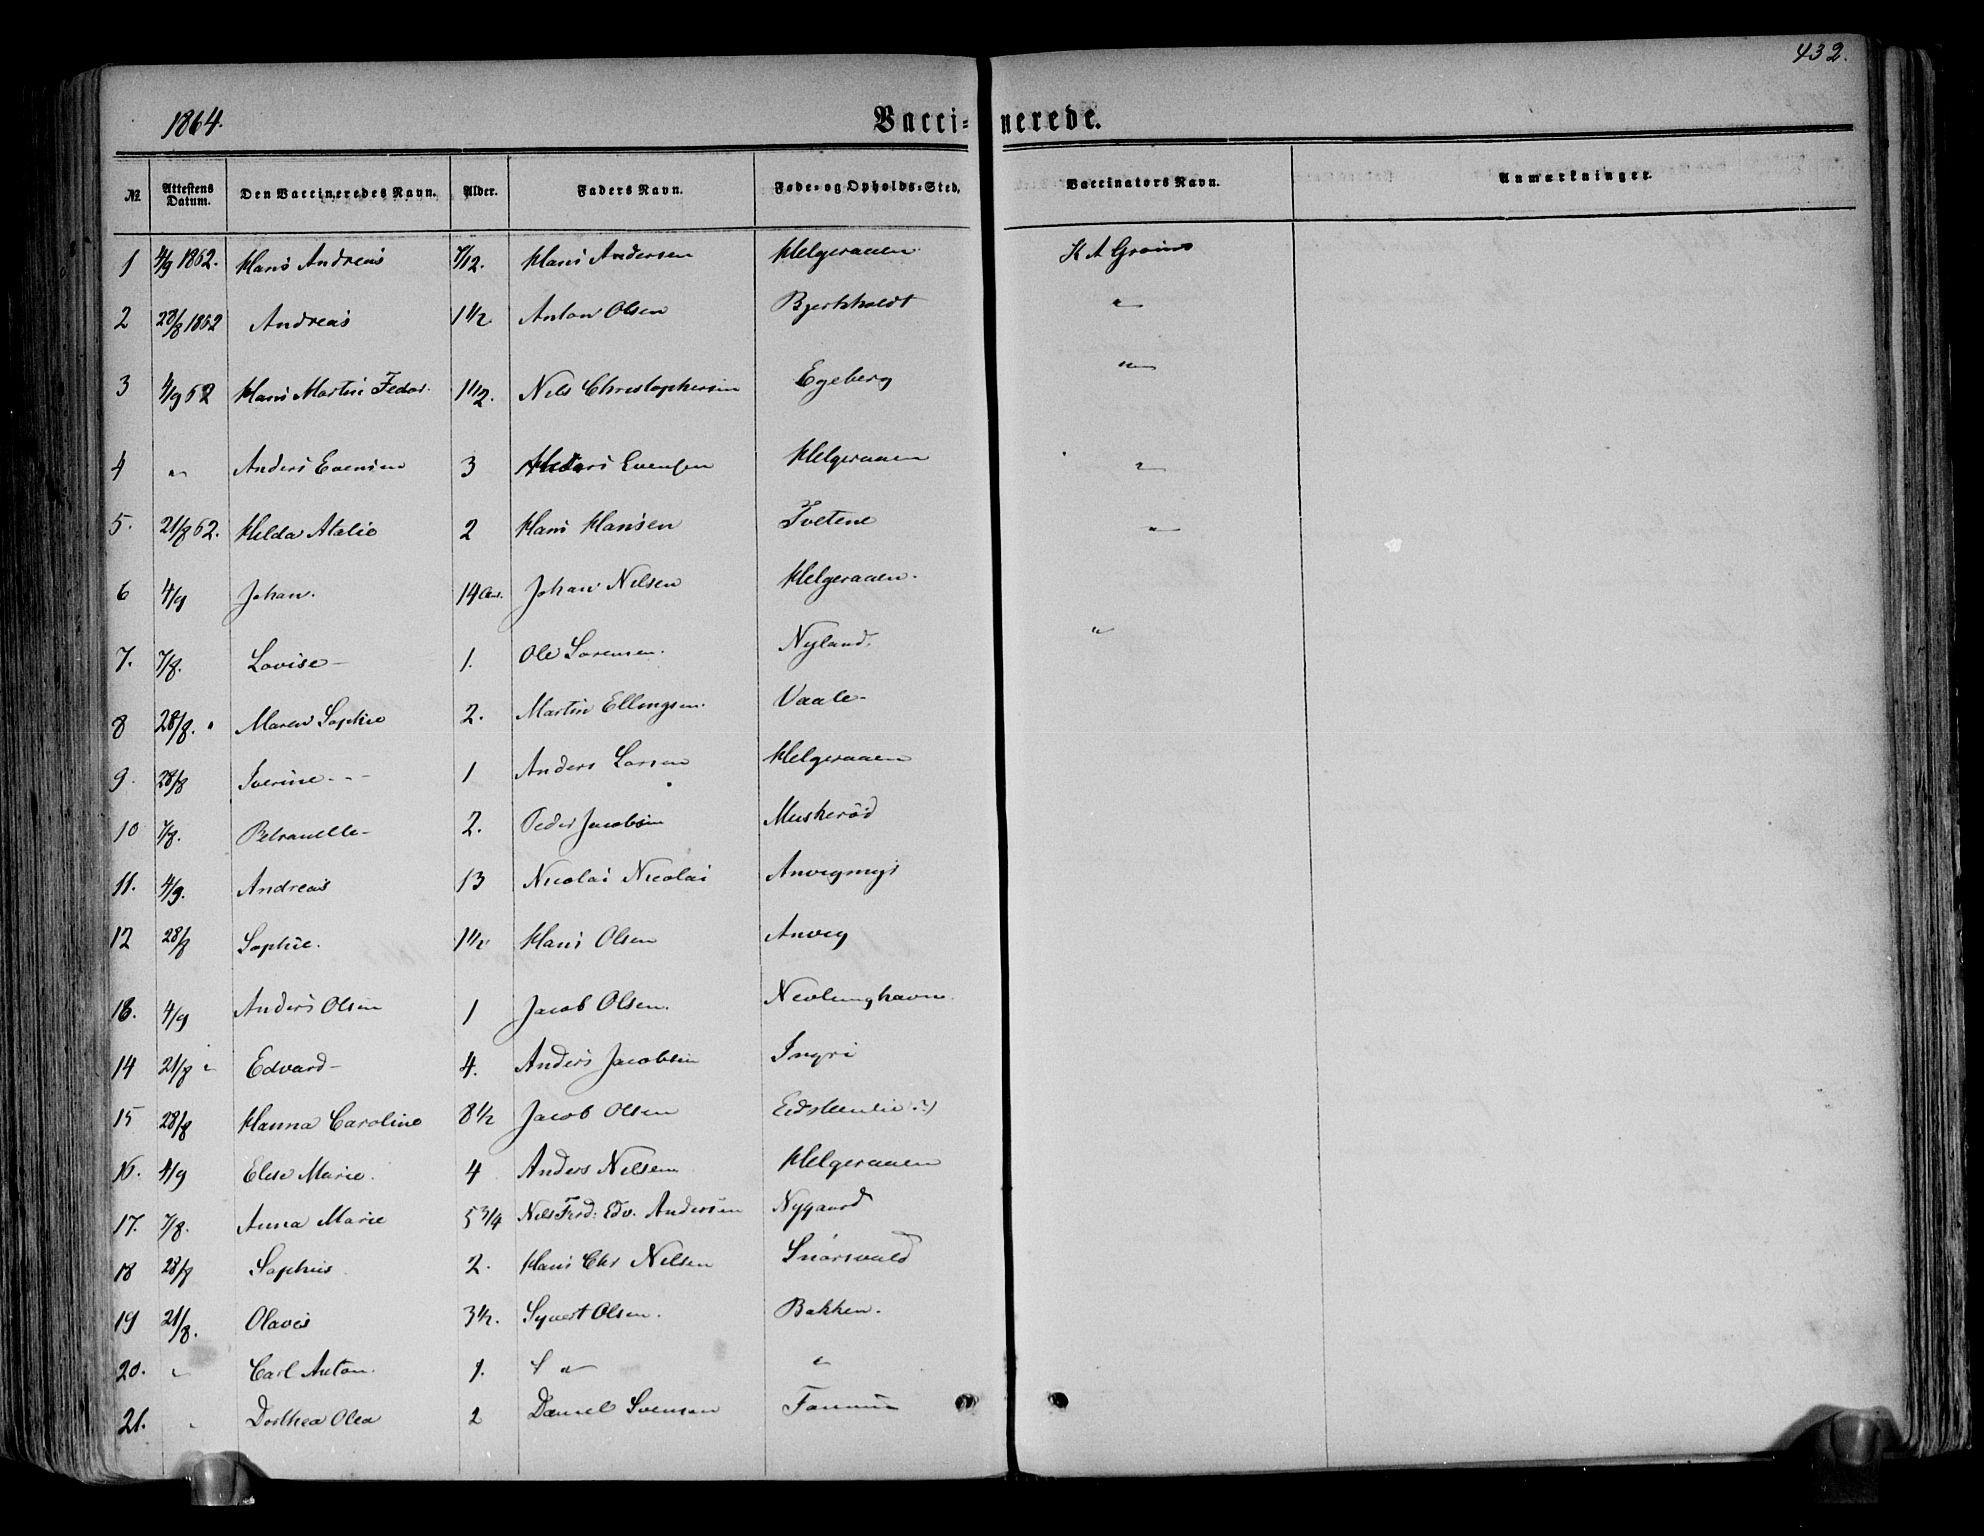 432.
1864.
Vacci- nerede.
No Attestens Datum. Den Vaccineredes Navn. Alder. Faders Navn. Føde- og Opholds-Sted. Vaccinators Navn. Anmærkninger.
1 4/9 1862. Hans Andreas 7/12. Hans Andersen Helgeraaen K A Grønn
2 28/8 1862 Andreas 1 1/2 Anton Olsen Bjerkholdt "
3 4/9 62 Hans Martin Fedor. 1 1/2. Nils Christophersen Egeberg "
4 " Anders Evensen 3 Anders Evensen Helgeraaen "
5. 21/8 62. Helda Atalie 2 Hans Hansen Tvetene "
6 4/9 Johan. 14 Johan Nilsen Helgeraaen. "
7. 7/8. Lovise - 1. Ole Sørensen. Nyland.
8 28/8. " Maren Sophie 2. Martin Ellingsen. Vaale-
9. 28/8 Iverine - - - 1 Anders Larsen Helgeraaen
10 7/8. Petranelle - 2. Peder Jacobsen Muskerød
11. 4/9. Andreas 13 Nicolai Nicolai Anvegmyr
12 28/8 Sophie. 1 1/2 Hans Olsen Anveg
13. 4/9 Anders Olsen 1 Jacob Olsen. Nevlunghavn.
14 21/8 " Edvard - 4. Anders Jacobsen Ingri
15 28/8 Hanna Caroline 8 1/2 Jacob Olsen
16. 4/9 Elise Marie. 4 Anders Nilsen Helgeraaen
17. 7/8. Anna Marie 5 3/4 Nils Ferd: Edv. Andersen Nygaard
18 28/8 Sophus 2. Hans Chr Nilsen Snørsvald
19 21/8. Olavis 3 1/2. Syvert Olsen. Bakken.
20. " Carl Anton. 1. S " "
21. " Dorthea Olea 2 Daniel Svensen